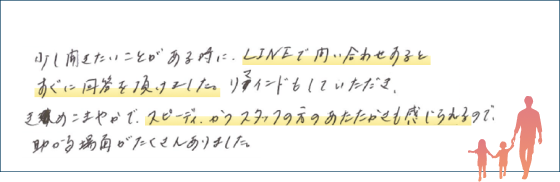 少し聞きたいことがある時に、LINEで問い合わせると
すぐに回答を頂けました。リマインドもしていただき、
きめこまやかで、スピーディ、かつスタッフの方のあたたかさも感じられるので、
助かる場面がたくさんありました。